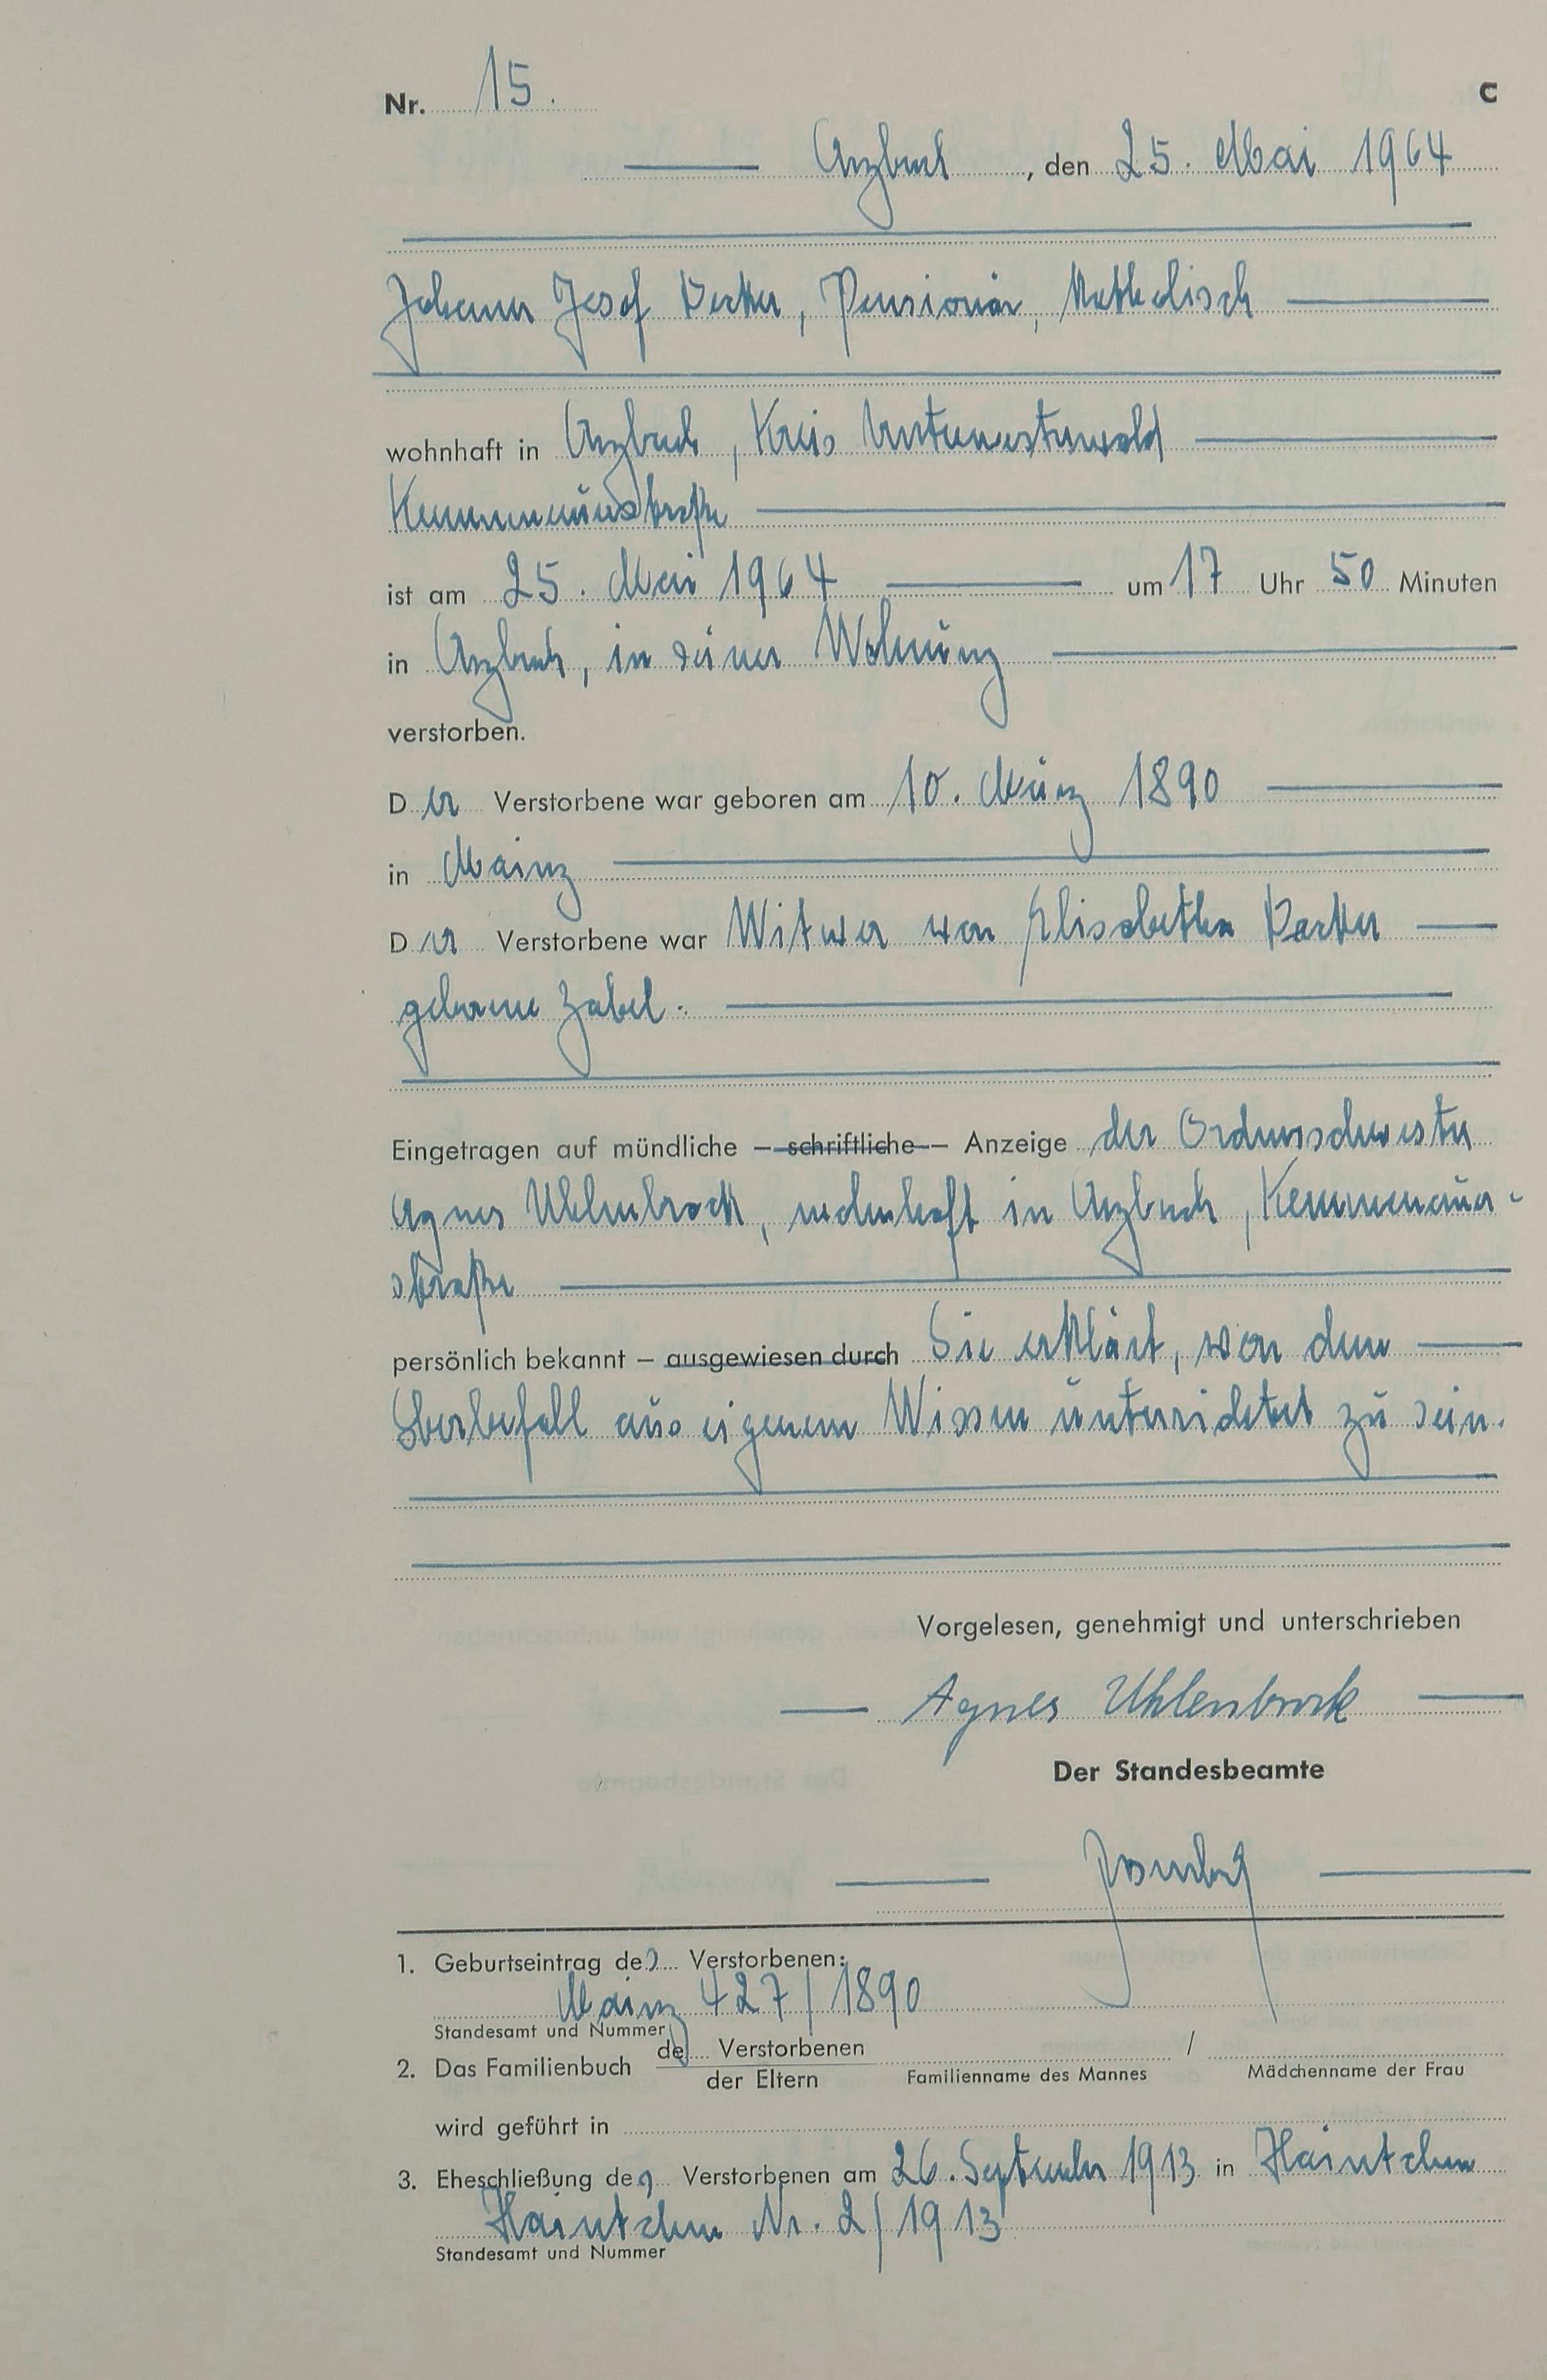 Nr. 15. C
Arzbach, den 25. Mai 1964
Johann Josef Becker, Pensionär, Katholisch
wohnhaft in Arzbach, Kreis Unterwesterwald
Kemmenauerstraße
ist am 25. Mai 1964 um 17 Uhr 50 Minuten
in Arzbach, in seiner Wohnung
verstorben.
Der Verstorbene war geboren am 10. März 1890
in Mainz
Der Verstorbene war Witwer von Elisabetha Becker
geborene Zabel.
Eingetragen auf mündliche – schriftliche – Anzeige der Ordensschwester
Agnes Uhlenbrock, wohnhaft in Arzbach, Kemmenauer-
straße
persönlich bekannt – ausgewiesen durch Sie erklärt, von dem
Sterbefall aus eigenem Wissen unterrichtet zu sein.
Vorgelesen, genehmigt und unterschrieben
Agnes Uhlenbrock
Der Standesbeamte
1. Geburtseintrag des Verstorbenen:
Mainz 427/1890
Standesamt und Nummer
2. Das Familienbuch de Verstorbenen /
der Eltern Familienname des Mannes Mädchenname der Frau
wird geführt in
3. Eheschließung des Verstorbenen am 26. September 1913 in Haintchen
Haintchen Nr. 2/1913
Standesamt und Nummer